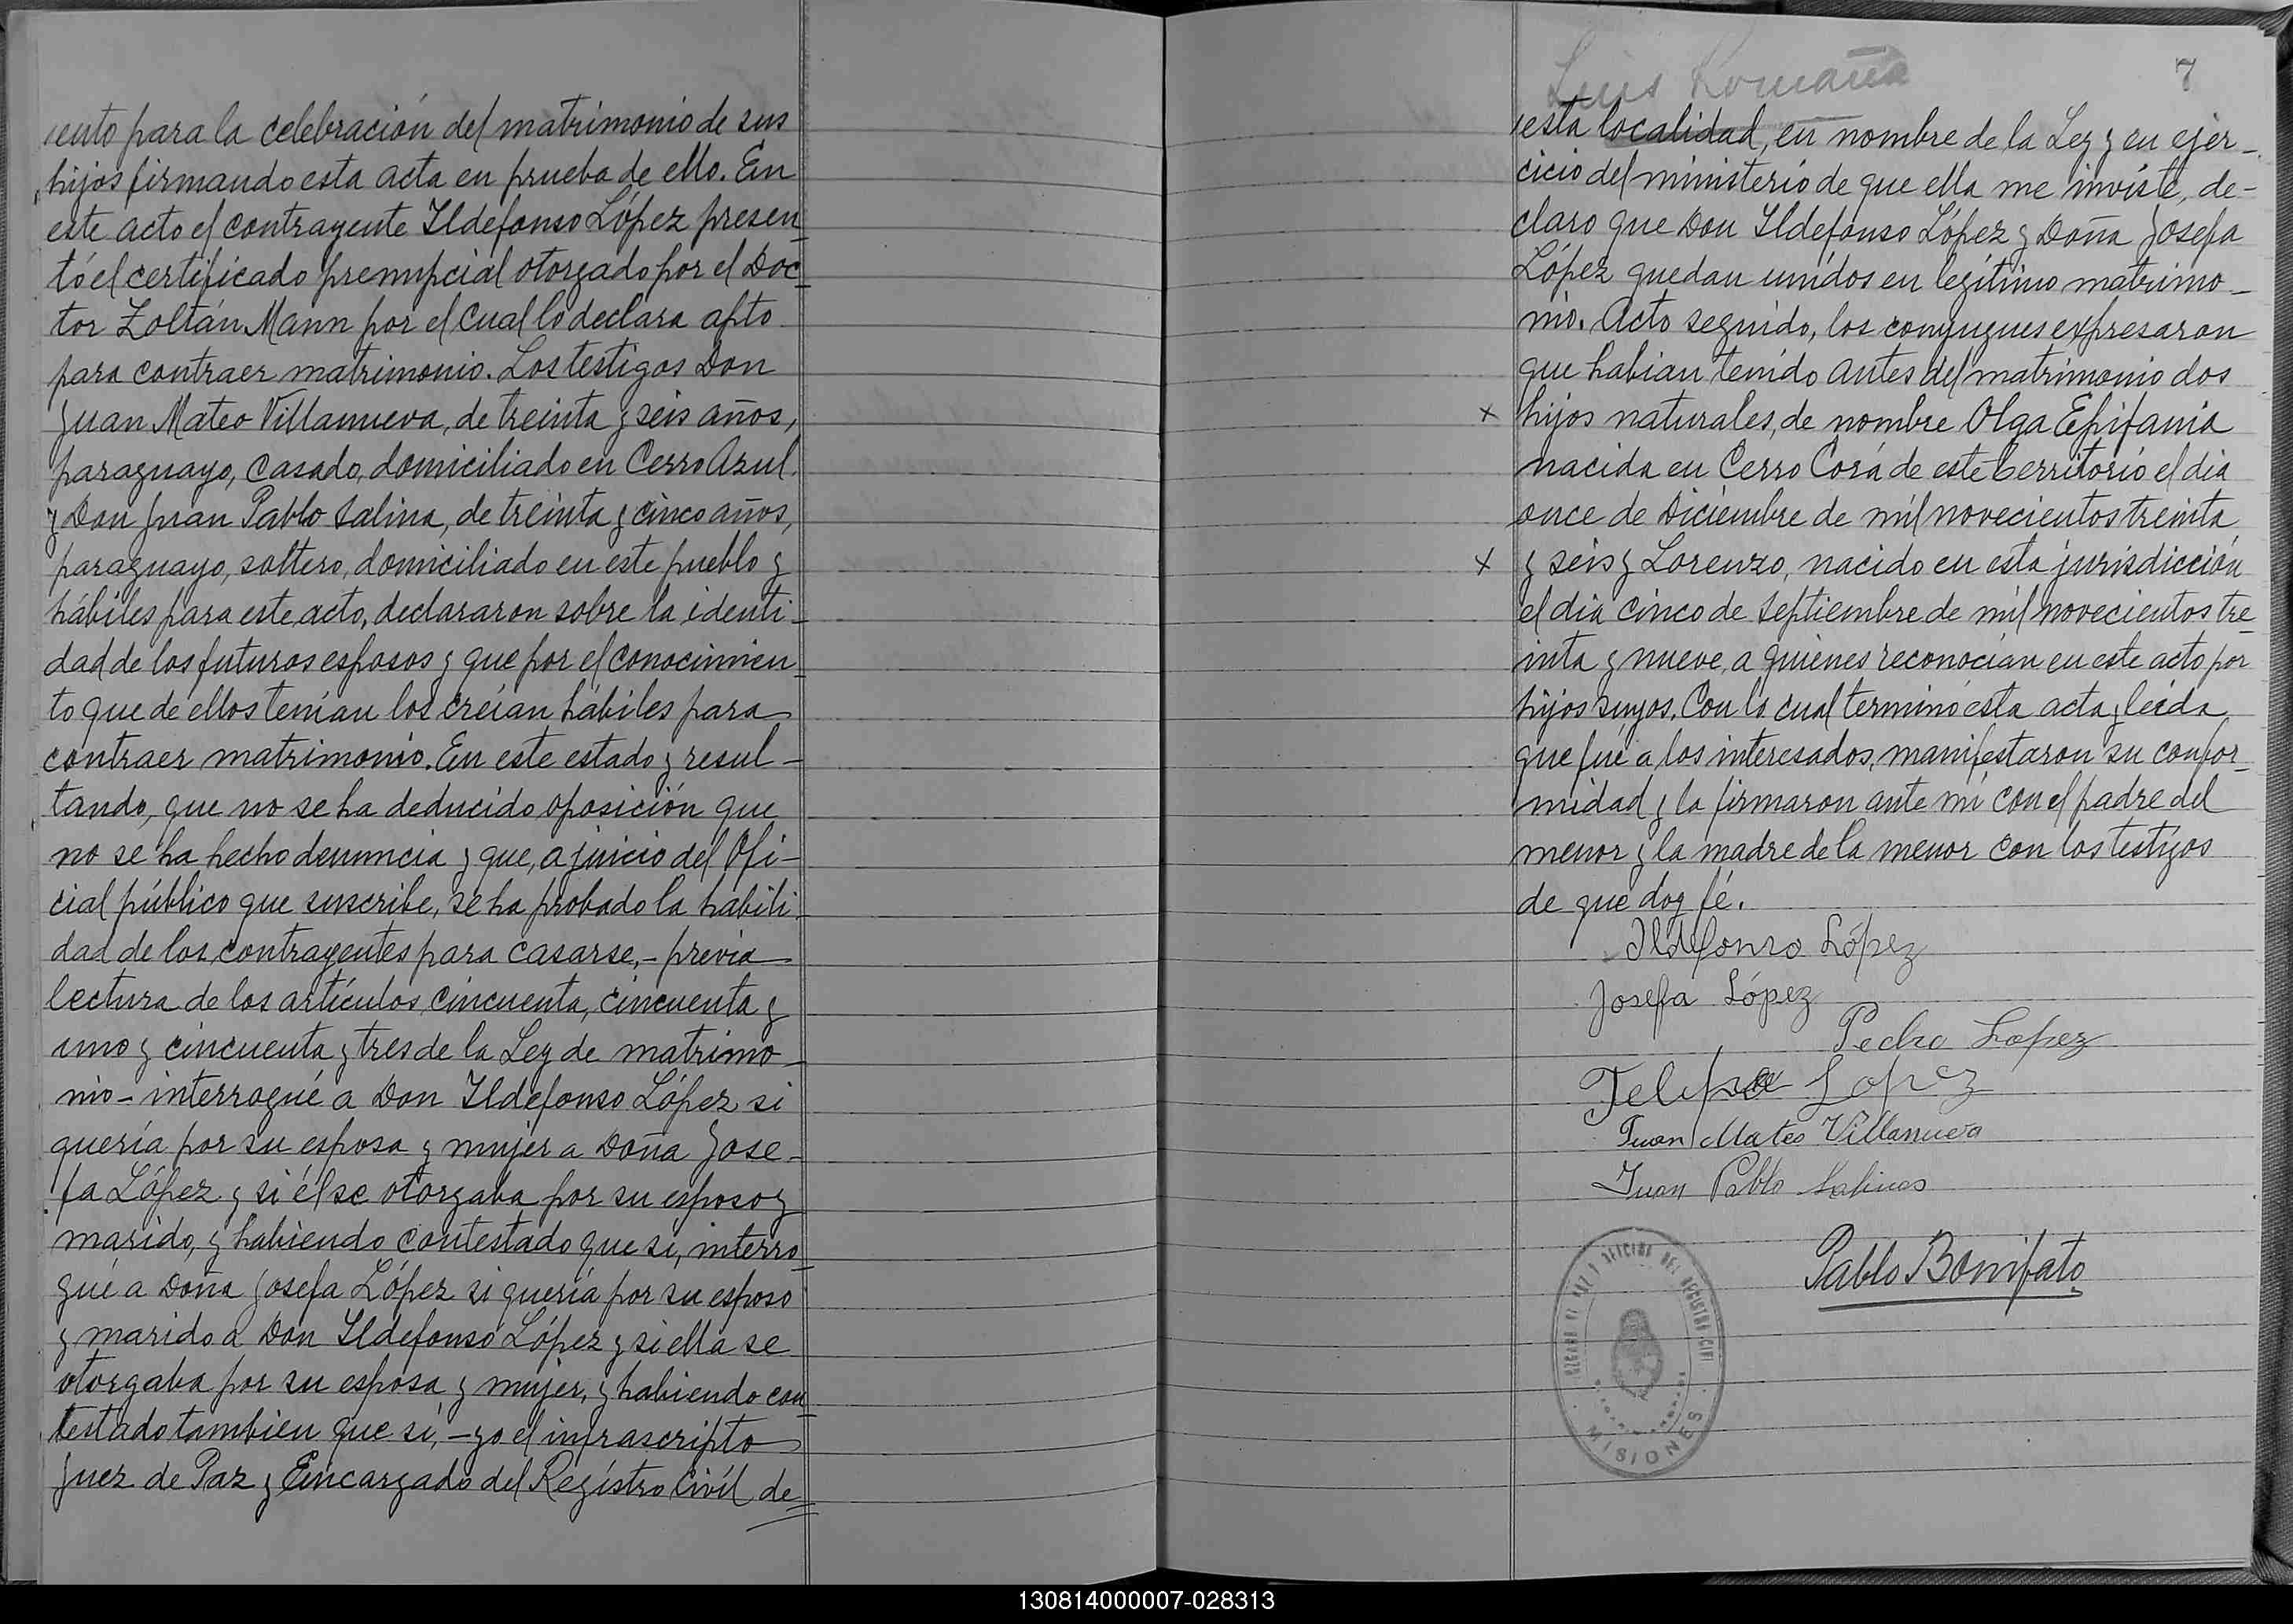 iento para la celebración del matrimonio de sus
hijos firmando esta acta en prueba de ello. En
este acto el contrayente Ildefonso López presen_
tó el certificado prenupcial otorgado por el Doc_
tor Zoltán Mann por el cual lo declara apto
para contraer matrimonio. Los testigos Don
Juan Mateo Villanueva, de treinta y seis años,
paraguayo, casado, domiciliado en Cerro Azul
y Don Juan Pablo Salina, de treinta y cinco años,
paraguayo, soltero, domiciliado en este pueblo y
hábiles para este acto, declararon sobre la identi_
dad de los futuros esposos y que por el conocimien_
to que de ellos tenían los creían hábiles para
contraer matrimonio. En este estado y resul_
tando, que no se ha deducido oposición que
no se ha hecho denuncia y que, a juicio del Ofi-
cial público que suscribe, se ha probado la habili_
dad de los contrayentes para casarse, - previa
lectura de los artículos cincuenta, cincuenta y
uno y cincuenta y tres de la Ley de matrimo_
nio - interrogué a Don Ildefonso López si
quería por su esposa y mujer a Doña Jose_
fa López y si él se otorgaba por su esposo y
marido, y habiendo contestado que sí, interro_
gué a Doña Josefa López si quería por su esposo
y marido a Don Ildefonso López y si ella se
otorgaba por su esposa y mujer, y habiendo con_
testado tambien que sí, - yo el infrascripto
Juez de Paz y Encargado del Registro Civil de
Luis Romaña
7
esta localidad, en nombre de la Ley y en ejer_
cicio del ministerio de que ella me inviste, de-
claro que Don Ildefonso López y Doña Josefa
López quedan unidos en legítimo matrimo_
nio. Acto seguido, los conyugues expresaron
que habian tenido antes del matrimonio dos
x hijos naturales, de nombre Olga Epifania
nacida en Cerro Corá de este territorio el dia
once de Diciembre de mil novecientos treinta
x y seis y Lorenzo, nacido en esta jurisdicción
el día cinco de Septiembre de mil novecientos tre_
inta y nueve, a quienes reconocían en este acto por
hijos suyos. Con lo cual terminó esta acta y leida
que fué a los interesados, manifestaron su confor_
midad y la firmaron ante mi con el padre del
menor y la madre de la menor con los testigos
de que doy fé.
Ildefonso López
Josefa López
Pedro Lopez
Felipa Lopez
Juan Mateo Villanueva
Juan Pablo Salinas
Pablo Bonifato
OFICINA DEL REGISTRO CIVIL
MISIONES
130814000007-028313